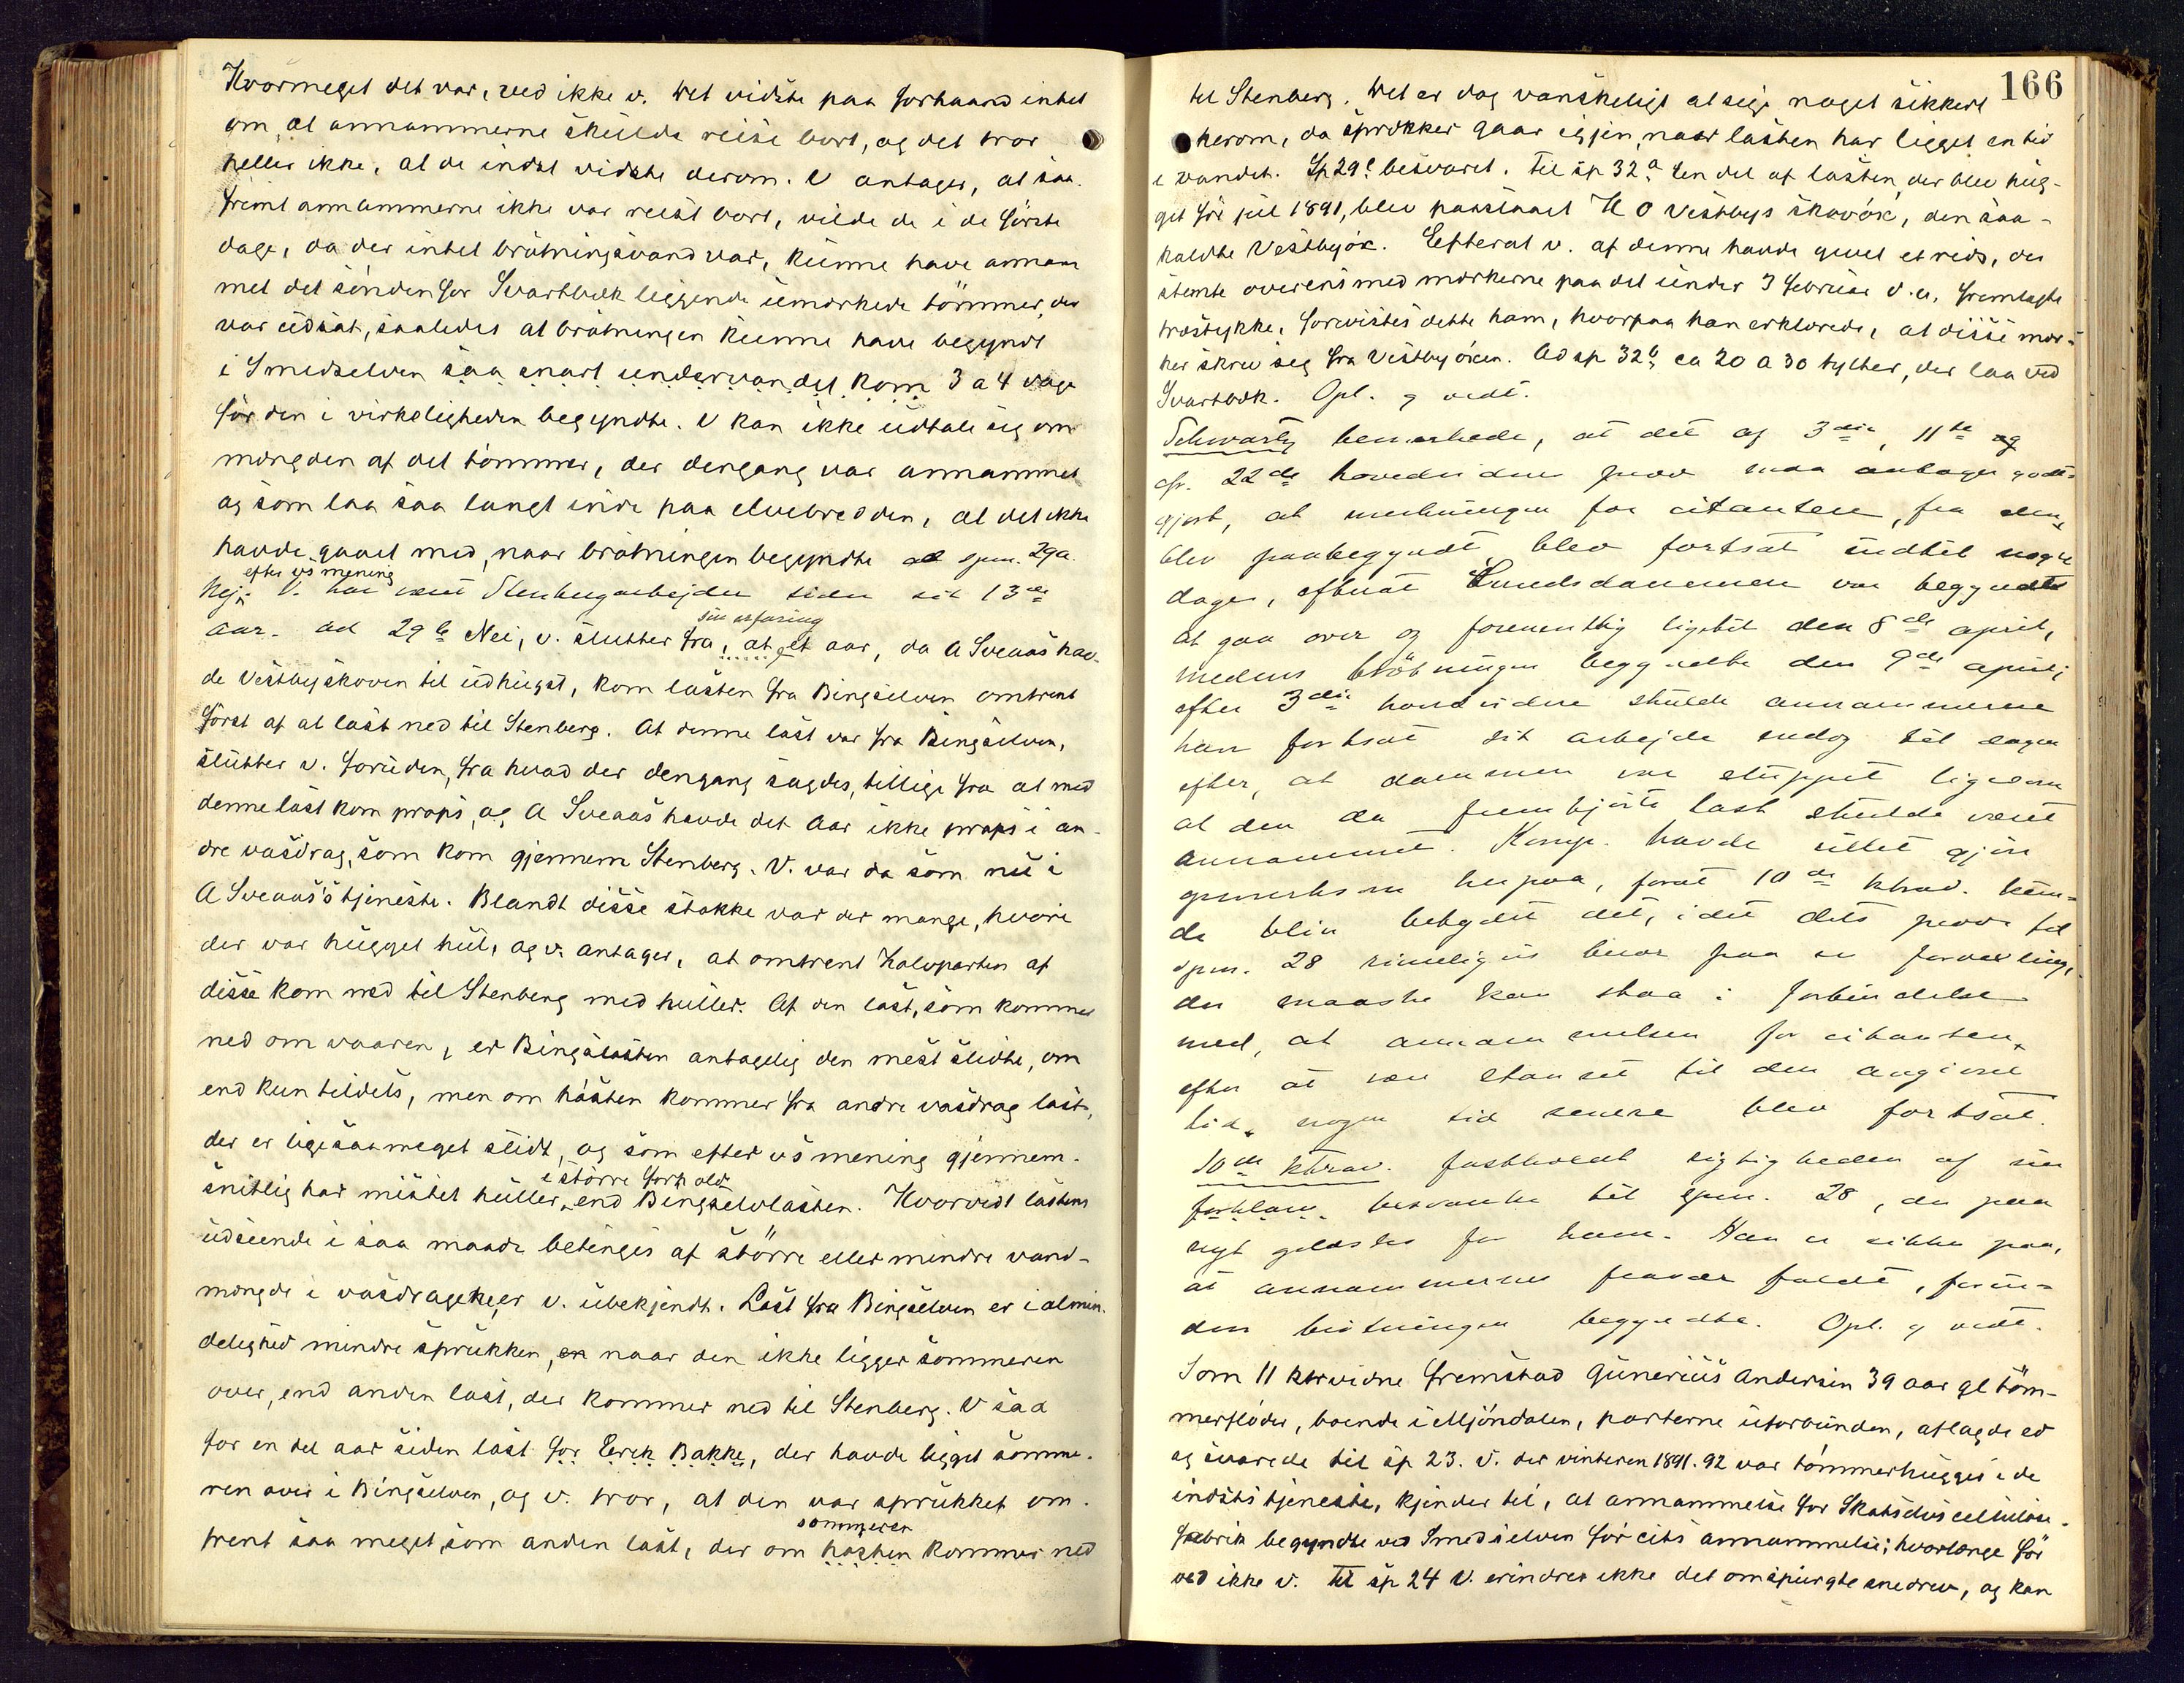 Hvormeget det var, ved ikke v. Det vidste paa forhaand intet
om, at annammerne skulde reise bort, og det tror
heller ikke, at de indst vidste derom. V antager, at saa-
fremt annammerne ikke var reist bort, vilde de i de første
dage, da der intet brøtningsvand var, kunne have annam
met det søndenfor Svartbæk liggende umærkede tömmer, der
var udsat, saaledes at brøtningen kunne have begyndt
i Smedselven saa snart undervandet kom 3 a 4 dage
før den i virkeligheden begyndte. V kan ikke udtale sig om
mængden af det tømmer, der dengang var annammet
og som laa saa langt inde paa elvebredden, at det ikke
havde gaaet med, naar brøtningen begyndte ad spm. 29a.
efter vs mening
Nej. V. har været Stenbergarbejder siden sit 13de
sin erfaring
aar. ad 29 b Nei, v. slutter fra, at et aar, da A Sveaas hav-
de Vestbyskoven til udhugst, kom lasten fra Bingselven omtrent
først af al last ned til Stenberg. At denne last var fra Bingselven,
slutter v. foruden, fra hvad der dengang sagdes, tillige fra at med
denne last kom props, og A Sveaas havde det Aar ikke props i an-
dre vasdrag, som kom gjennem Stenberg. V. var da som nu i
A Sveaas's tjeneste. Blandt disse stokke var der mange, hvori
der var hugget hul, og v. antager, at omtrent Halvparten af
disse kom ned til Stenberg med huller. Af den last, som kommer
ned om vaaren, er Bingslasten antagelig den mest slidte, om
end kun tildels, men om høsten kommer fra andre vasdrag last,
der er ligesaameget slidt, og som efter vs mening gjennem-
i større forhold
snitlig har mistet huller, end Bingselvlasten. Hvorvidt lastens
udseende i saa maade betinges af större eller mindre vand-
mængde i vasdragene, er v. ubekjendt. Last fra Bingselven er i almin-
delighed mindre sprukken, naar den ikke ligger sommeren
over, end anden last, der kommer ned til Stenberg. V saa
for en del aar siden last for Eerik Bakke, der havde ligget somme-
ren over i Bingselven, og v. tror, at den var sprukket om-
sommeren
trent saa meget, som anden last, der om høsten kommer ned
166
til Stenberg. Det er dog vanskeligt at sige noget sikkert
herom, da sprækker gaar igjen, naar lasten har ligget en tid
i vandet. Sp 29c besvaret. Til sp 32a En del af lasten, der blev hug-
get før jul 1891, blev paaslaaet H O Vestbys skovøx, den saa-
kaldte Vestbyøx. Efterat v. af denne havde givet et rids, der
stemte overens med mærkerne paa det under 3 februar d.a. fremlagte
træstykke, forevistes dette ham, hvorpaa han erklærede, at disse mær-
ker skrev seg fra Vestbyøxen. Ad sp 32b ca 20 a 30 tylter, der laa ved
Svartbæk. Opl. g vedt.
Schwartz bemærkede, at det af 3die, 11te og
cfr. 22de hovedvidne prov maa antages godt-
gjort, at merkningen for citanten, fra den
blev paabegyndt, blev fortsat indtil nogle
dage, efterat Smedsdammen var begyndt
at gaa over og formentlig ligetil den 8de april,
medens brötningen begyndte den 9de april;
efter 3die hovedvidne skulde annammerne
have fortsat sit arbejde endog til dagen
efter, at dammen var stuppet ligesom
al den da fremkjørte last skulde været
annammet. Komp. havde villet gjøre
opmerksom herpaa, forat 10de ktrav. kun-
de blive betydet det, idet dets prov til
spm. 28 rimeligvis beror paa en forvexling,
der maaske kan staa i forbindelse
med, at annammelsen for citanten,
efter at være stanset til den angivne
tid, nogen tid senere blev fortsat.
10de ktrav. fastholdt rigtigheden af sin
forklaring besvarelse til spm. 28, der paa
nyt oplæstes for ham. Han er sikker paa,
at annammernes fravær faldt, forin-
den brötningen begyndte. Opl. g vedt.
Som 11 ktrvidne fremstod Gunerius Andersen 39 aar gl töm-
merfløder, boende i Mjöndalen, parterne uforbunden, aflagde ed
og svarede til sp 23. V. der vinteren 1891.92 var tømmerhugger i de
indsts tjeneste, kjender til, at annammelse for Skotselvs cellulose-
fabrik begyndte ved Smedselven før cits annammelse; hvorlænge för
ved ikke v. Til sp 24 V. erindrer ikke det omspurgte snedrev, og kan